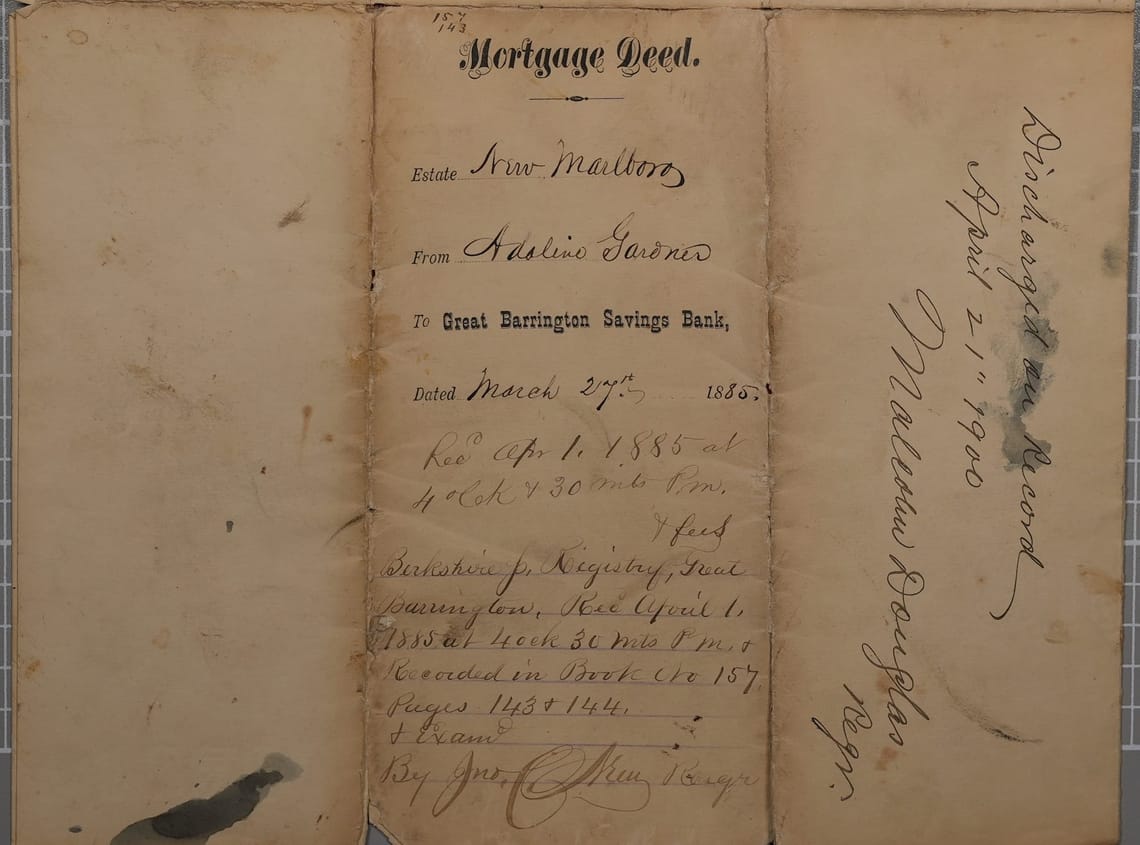 157
143
Mortgage Deed.
Estate New Marlboro
From Adaline Gardner
To Great Barrington Savings Bank,
Dated March 27st 1885.
Recd Apr 1. 1885 at
4 oClk & 30 mts P.m.
& fees
Berkshire So. Registry, Great
Barrington, Rec April 1,
1885 at 4 ock 30 mts P m, &
Recorded in Book No 157
Pages 143 & 144.
& Examd
By Jno. Regr
Discharged on Record
April 21" 1900
Malcolm Douglas
Regr.